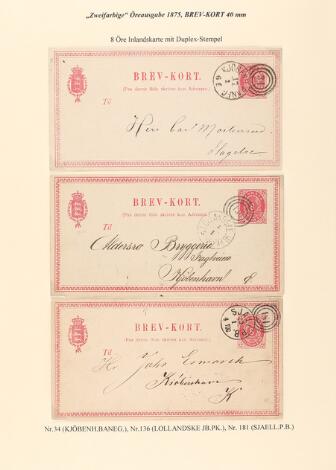 „Zweifarbige" Öreausgabe 1875, BREV-KORT 40 mm
8 Öre Inlandskarte mit Duplex-Stempel
BREV-KORT.
(Paa denne Side skrives kun Adressen.)
Til
Herr Carl Mortensen
Slagelse
BREV-KORT.
(Paa denne Side skrives kun Adressen.)
Til
Bryggerie
Kjöbenhavn
BREV-KORT.
(Paa denne Side skrives kun Adressen.)
Til
Hr.
Kjöbenhavn
K
Nr.34 (KJÖBENH.BANEG.), Nr.136 (LOLLANDSKE JB.PK.), Nr. 181 (SJAELL.P.B.)